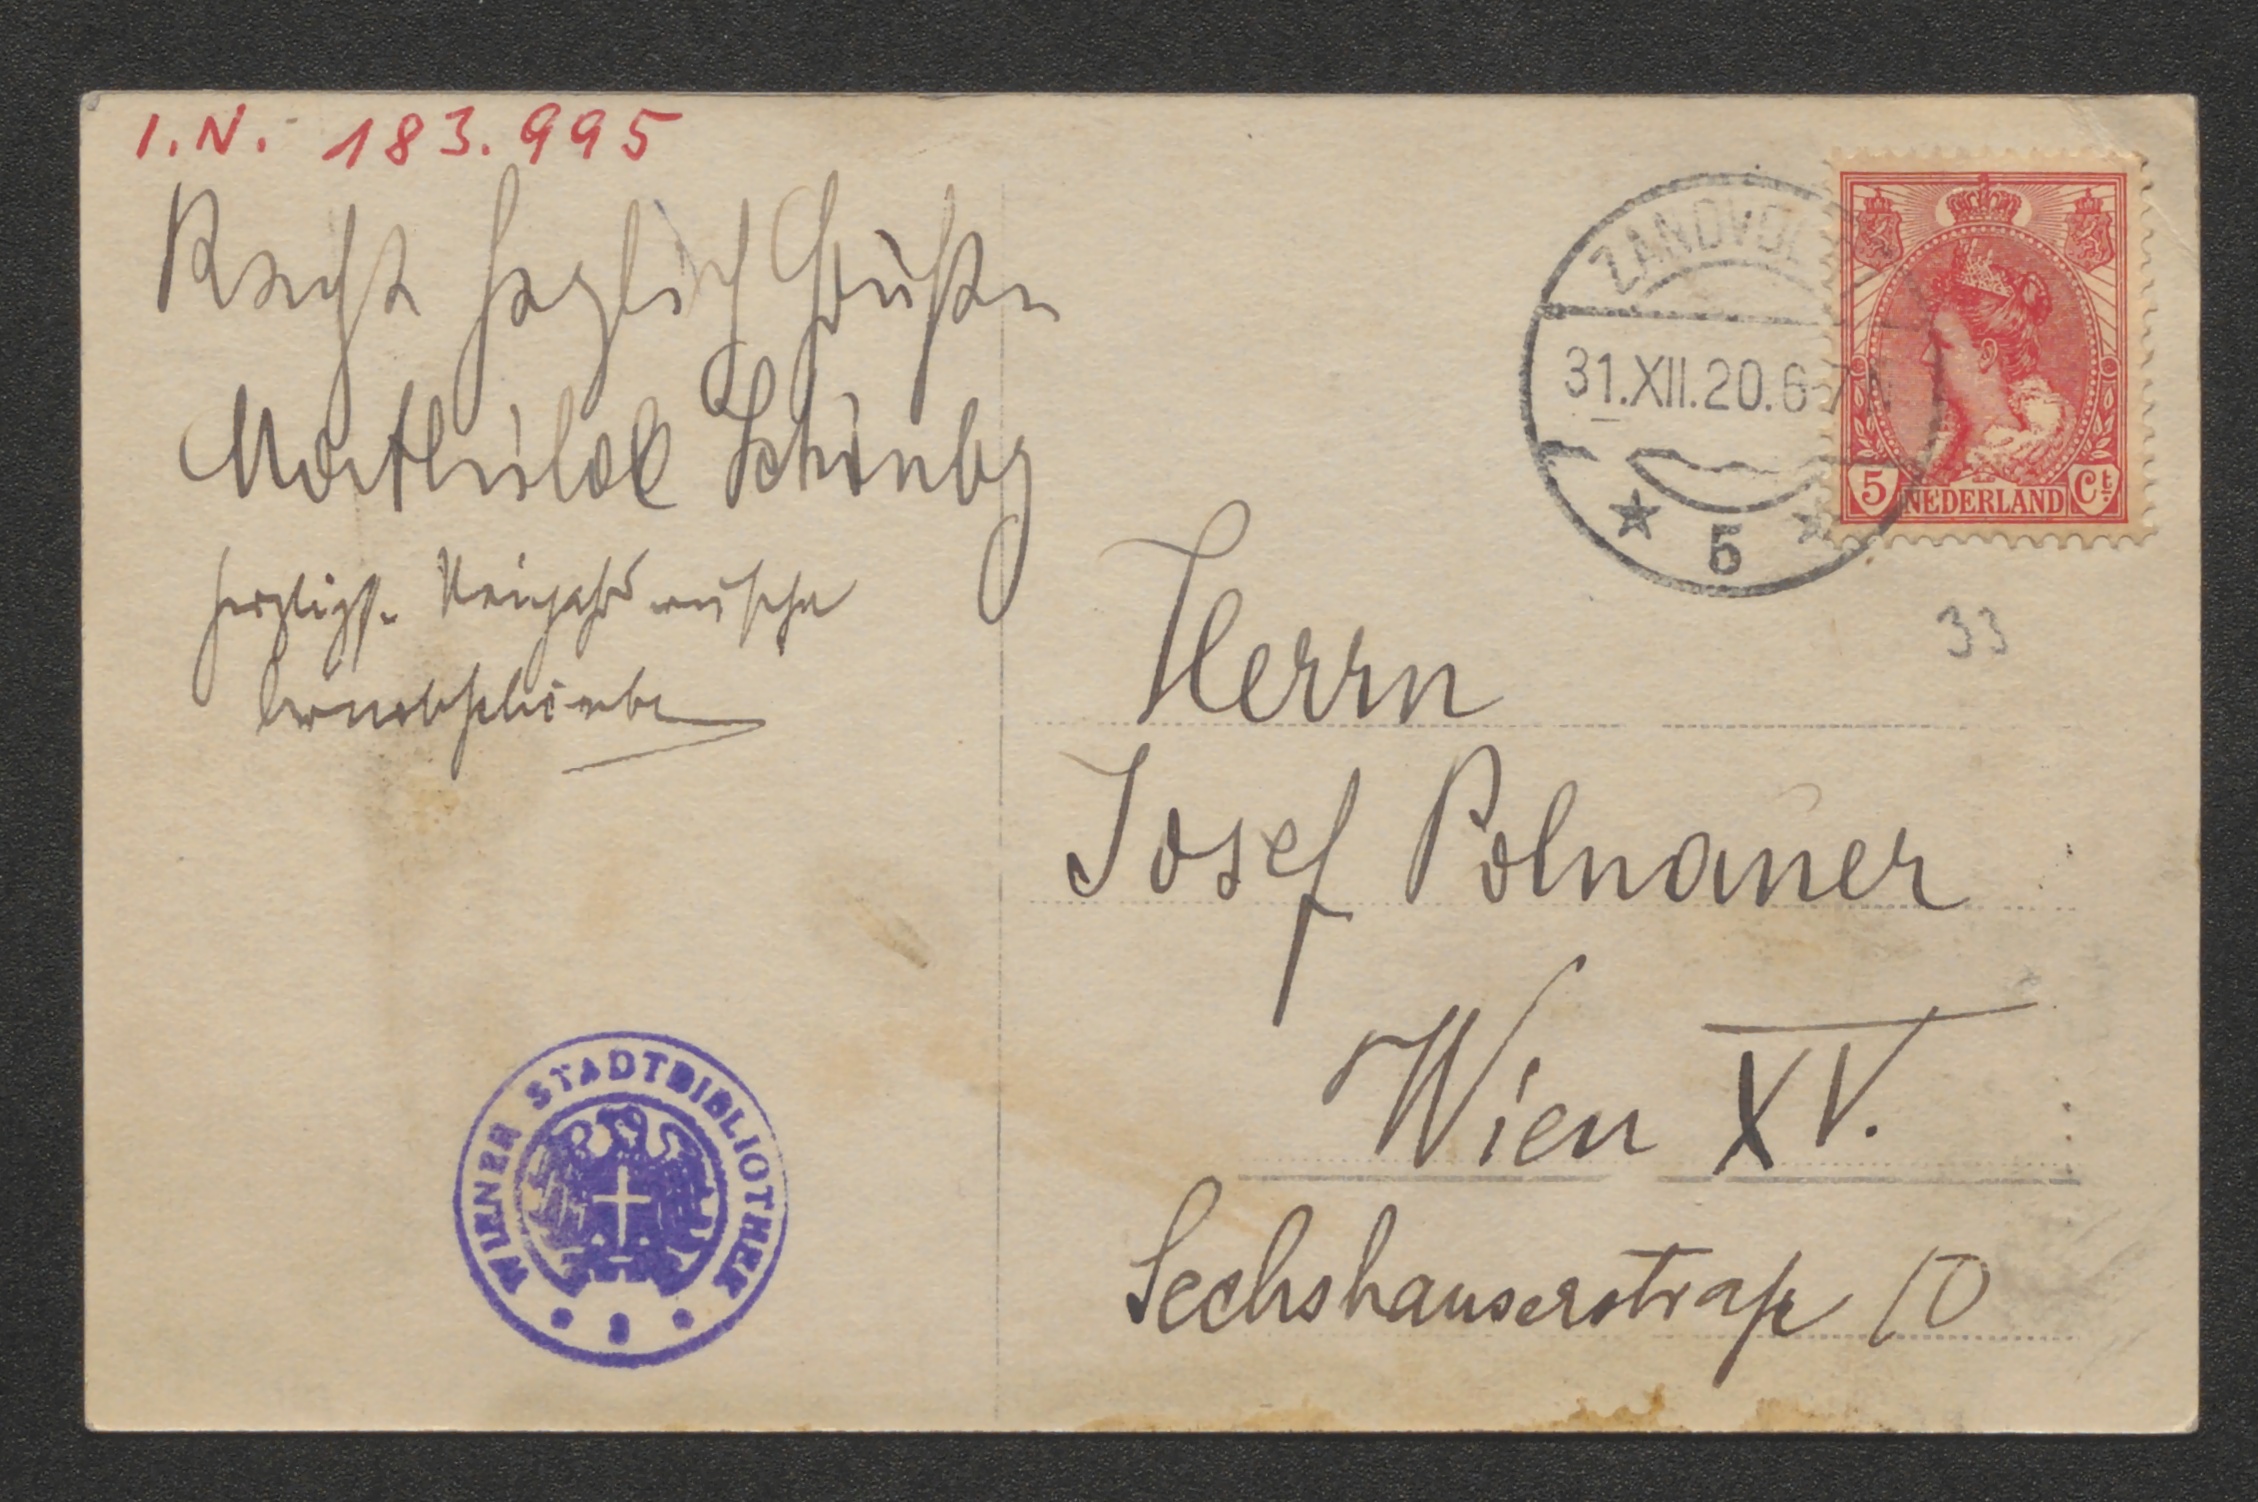 I.N. 183.995
Recht herzlich Grüße
Mathilde Schönbg
herzlichste Neujahrswünsche
ZANDVOORT
31.XII.20.6-7N
5
5 NEDERLAND Ct.
33
Herrn
Josef Polnauer
Wien XV.
Sechshauserstraße 10
WIENER STADTBIBLIOTHEK